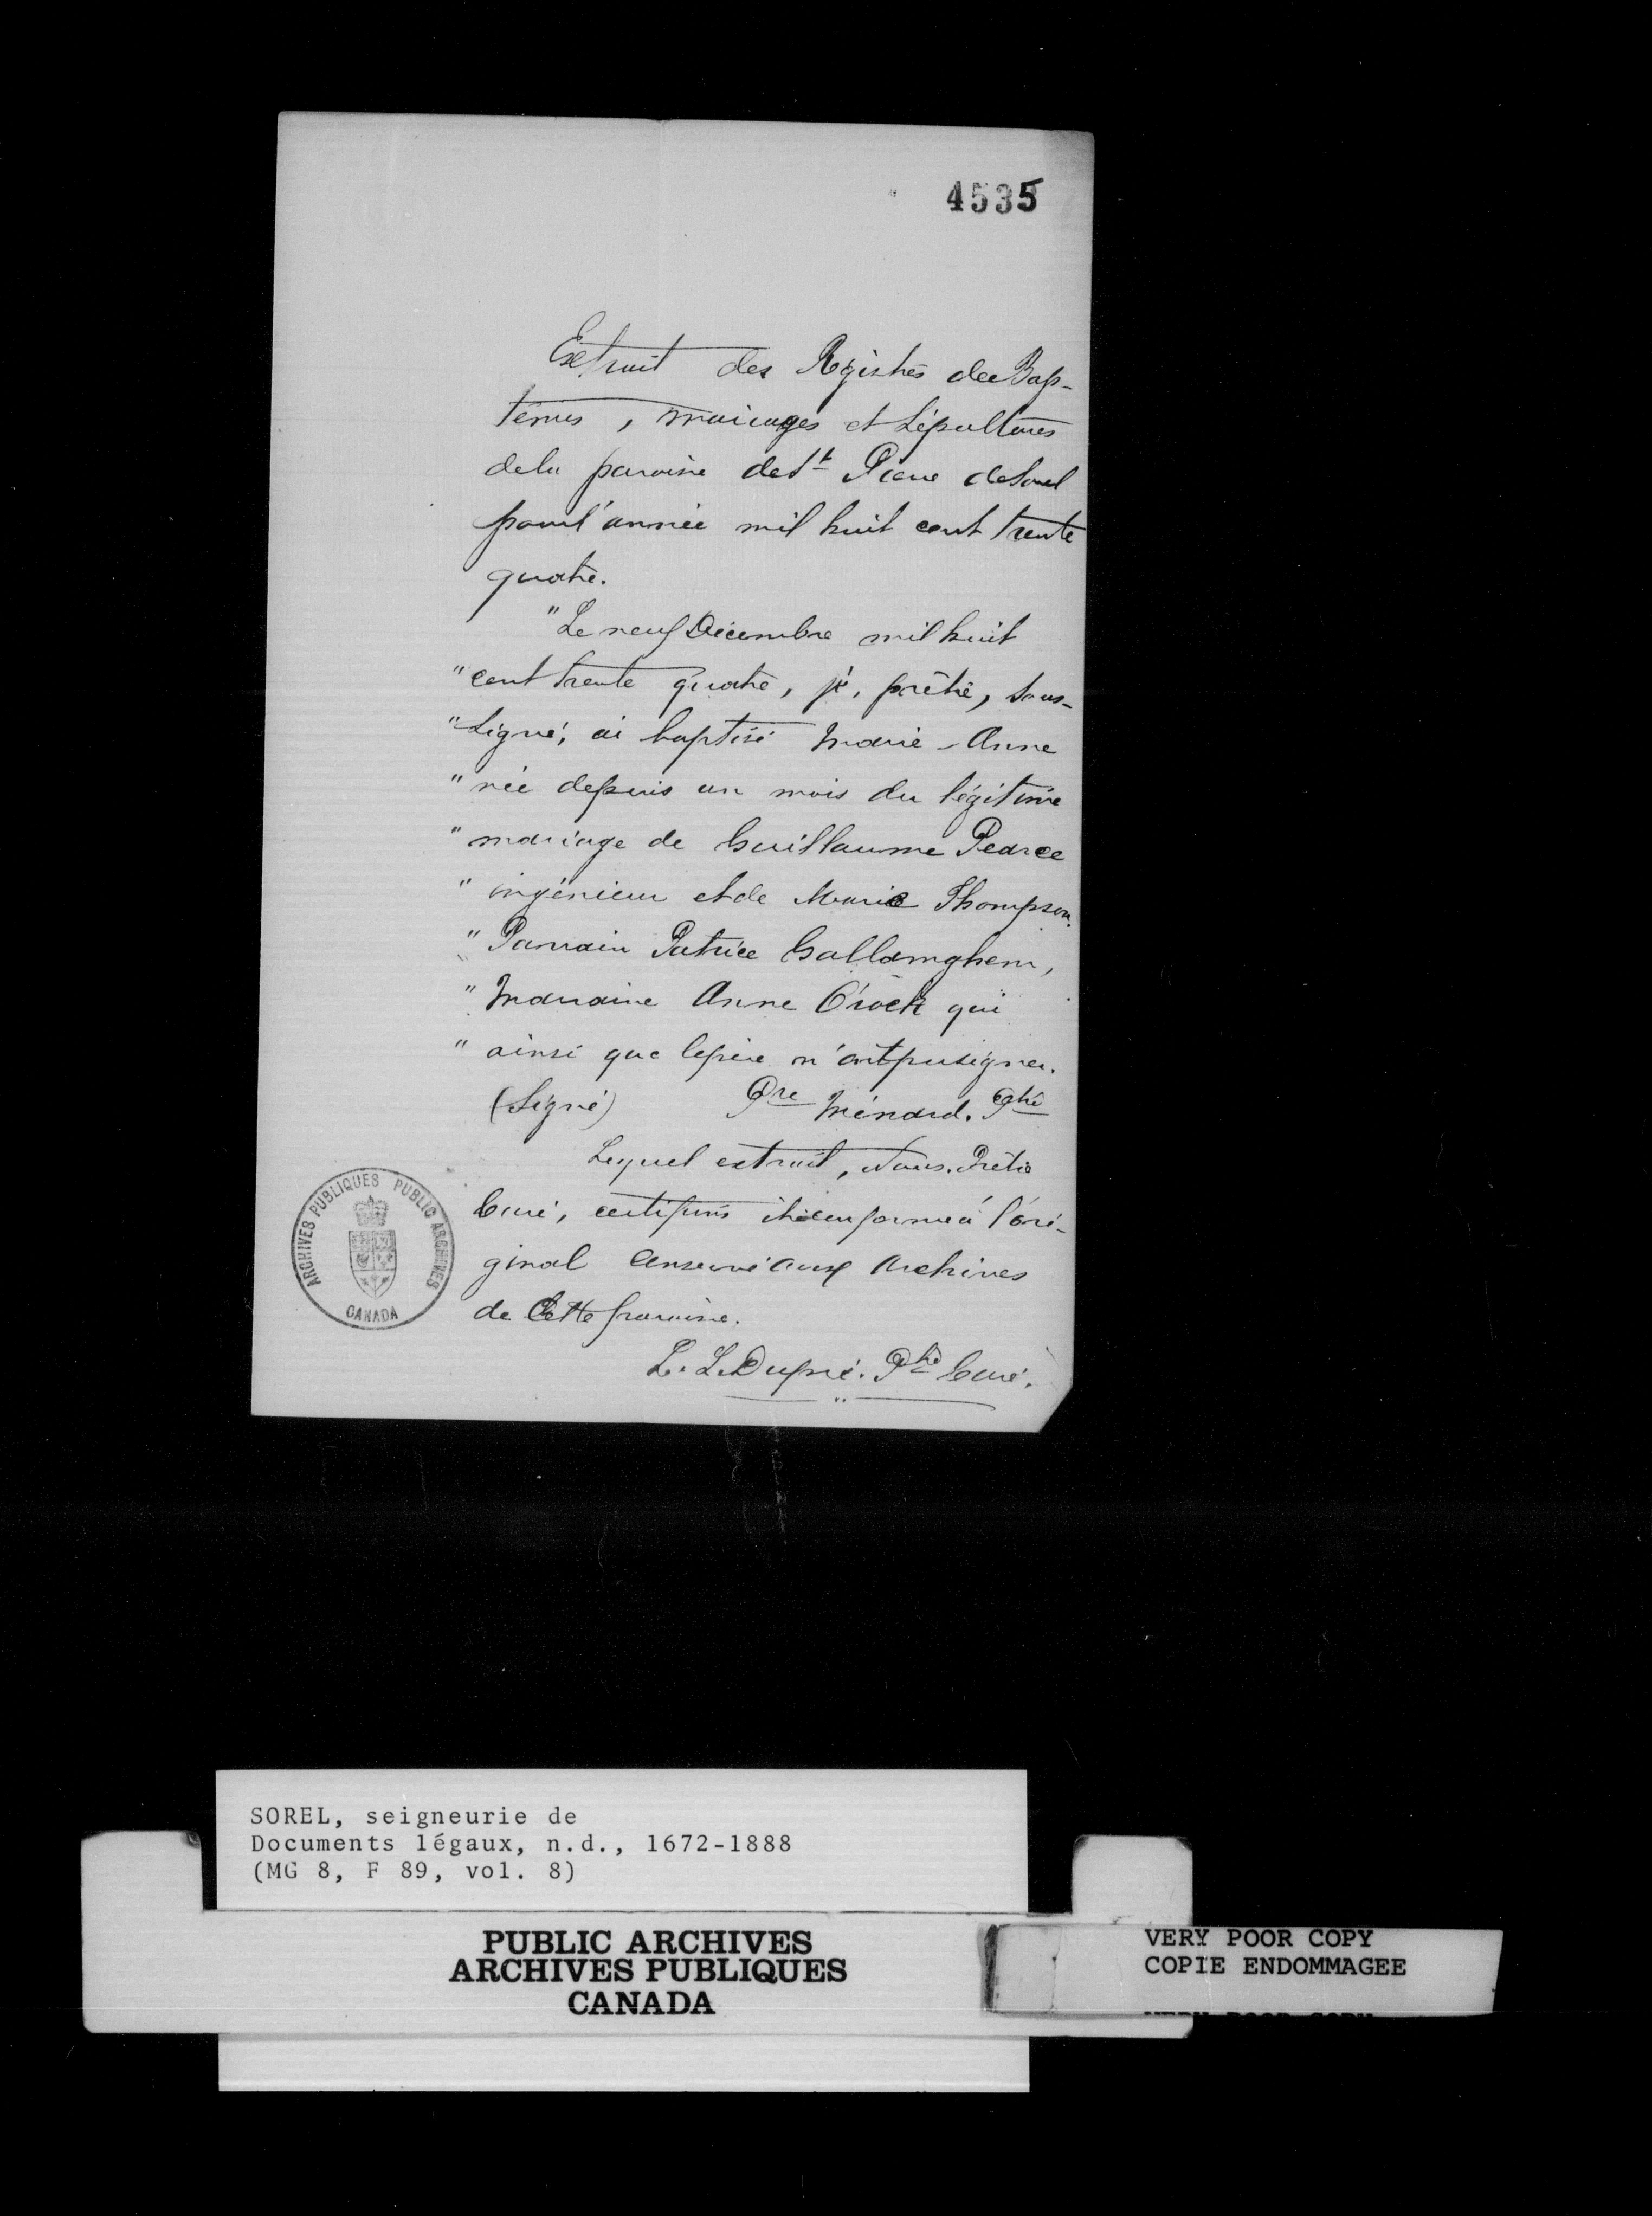 4535
Extrait des Régistres de Bap-
têmes, mariages et Sépultures
de la paroisse de St Pierre de Sorel
pour l'année mil huit cent trente
quatre.
"Le neuf Décembre mil huit
"cent trente quatre, je, prêtre, sous-
"signé, ai baptisé Marie-Anne
"née depuis un mois du légitime
"mariage de Guillaume Pearce
"ingénieur et de Marie Thompson.
"Parrain Patrice Gallamghem,
"Marraine Anne qui
"ainsi que le père n'ont pu signer.
(Signé) Pre Ménard. Ptre
Lequel extrait, Nous, Prêtre
Curé, certifions être conforme à l'ori-
ginal conservé aux Archives
de Cette paroisse.
L. L. Dupré. Ptre Curé.
ARCHIVES PUBLIQUES PUBLIC ARCHIVES
CANADA
SOREL, seigneurie de
Documents légaux, n.d., 1672-1888
(MG 8, F 89, vol. 8)
PUBLIC ARCHIVES
ARCHIVES PUBLIQUES
CANADA
VERY POOR COPY
COPIE ENDOMMAGEE
VERY POOR COPY